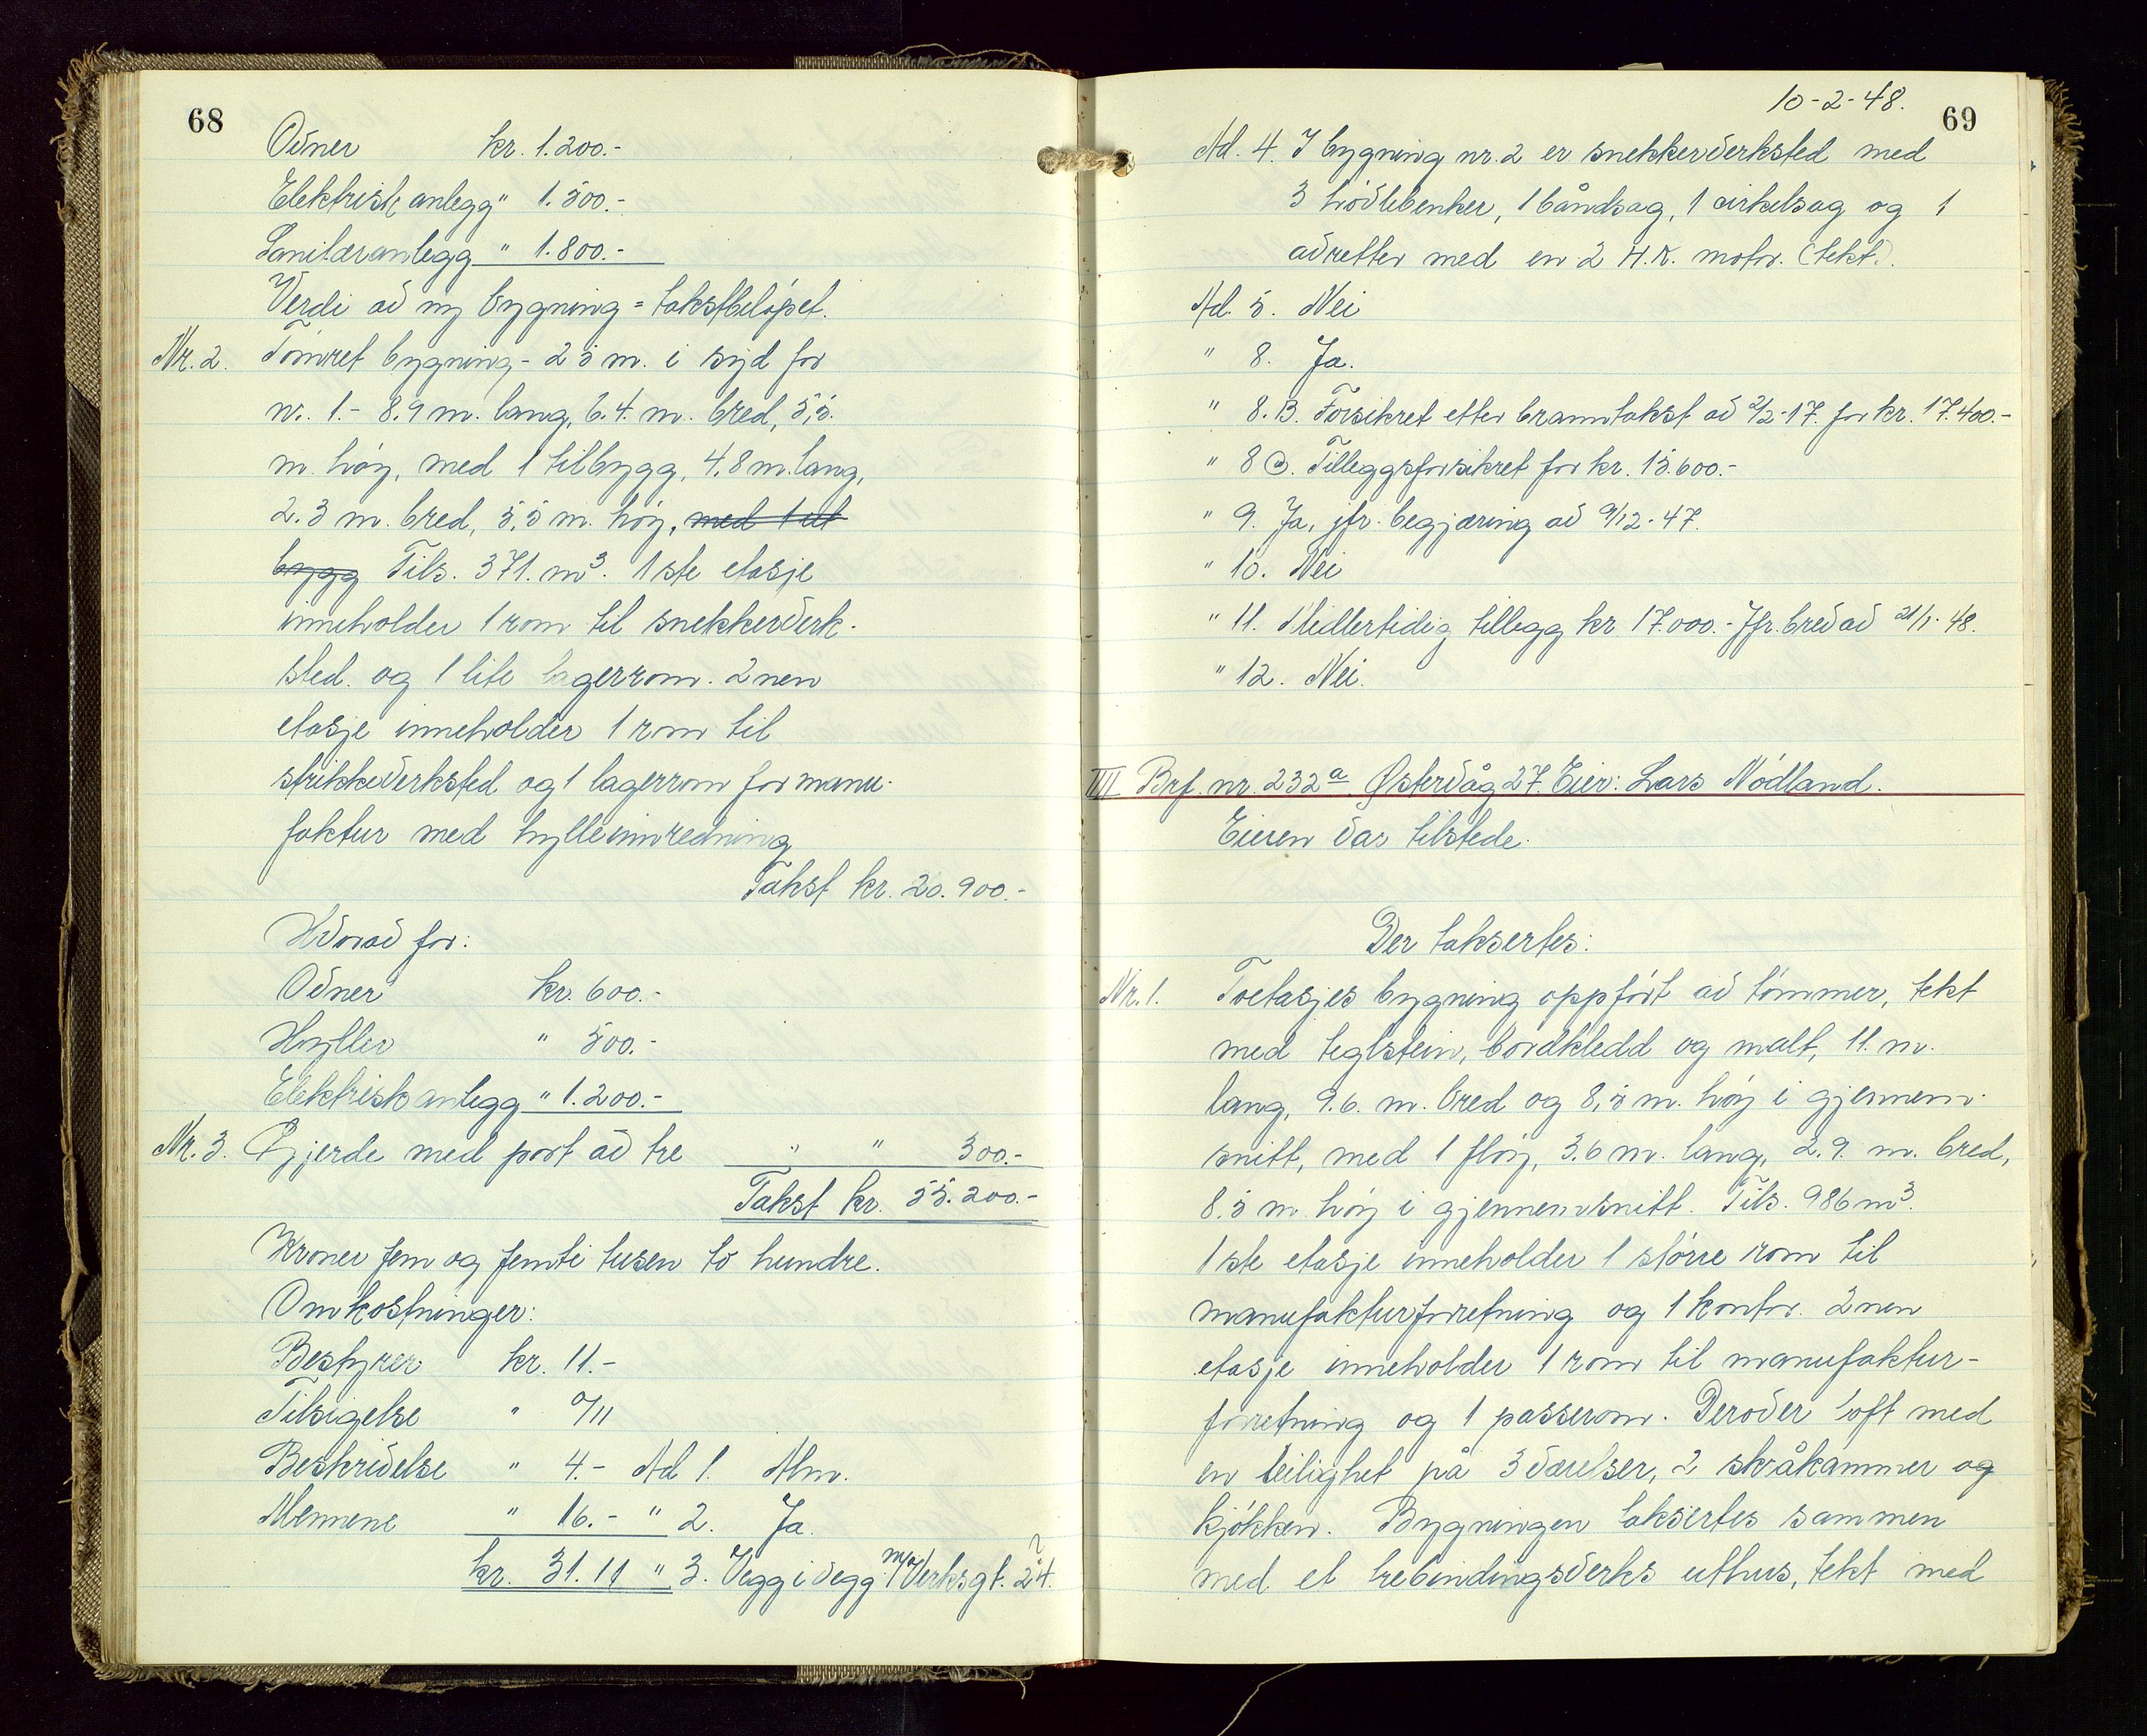 68
Ovner kr. 1.200.-
Elektrisk anlegg " 1.500.-
Sanitæranlegg " 1.800.-
Verdi av ny bygning = takstbeløpet.
Nr. 2. Tømret bygning - 25 m. i syd for
nr. 1. - 8.9 m. lang, 6.4. m. bred, 5,5.
m. høy, med 1 tilbygg, 4,8 m. lang,
2.3 m. bred, 5,5 m. høy, med 1 til
bygg Tils. 371. m³. 1ste etasje
inneholder 1 rom til snekkerverk-
sted. og 1 lite lagerrom. 2nen
etasje inneholder 1 rom til
strikkeverksted og 1 lagerrom for manu-
faktur med hylleinnredning
Takst kr. 20.900.-
Hvorav for:
Ovner kr. 600.-
Hyller " 500.-
Elektrisk anlegg " 1.200.-
Nr. 3. Gjerde med port av tre " " 300.-
Takst kr. 55.200.-
Kroner fem og femti tusen to hundre.
Omkostninger:
Bestyrer kr. 11.-
Tilsigelse " 0/11
Beskrivelse " 4.- Ad 1. Alm.
Mennene " 16.- " 2. Ja.
kr. 31.11 " 3. Vegg i vegg m/Verksgt. 24.
10-2-48.
69
Ad. 4. I bygning nr. 2 er snekkerverksted med
3 høvlebenker, 1 båndsag, 1 cirkelsag og 1
avretter med en 2 H.K. motor. (tekt).
Ad. 5. Nei
" 8. Ja.
" 8. B. Forsikret etter branntakst av 2/2-17. for kr. 17.400.-
" 8 C. Tilleggsforsikret for kr. 15.600.-
" 9. Ja, jfr. begjæring av 9/12-47.
" 10. Nei
" 11. Midlertidig tillegg kr. 17.000.- Jfr. brev av 21/1-48.
" 12. Nei.
III Brf. nr. 232a Østervåg 27. Eier: Lars Nødland.
Eieren var tilstede.
Der taksertes:
Nr. 1. Toetasjes bygning oppført av tømmer, tekt
med teglstein, bordkledd og malt, 11. m.
lang, 9.6. m. bred og 8,5 m. høy i gjennem-
snitt, med 1 fløy, 3.6 m. lang, 2.9. m. bred,
8.5 m. høy i gjennemsnitt. Tils. 986 m³.
1ste etasje inneholder 1 større rom til
manufakturforretning og 1 kontor. 2nen
etasje inneholder 1 rom til manufaktur-
forretning og 1 passerom. Derover loft med
en leilighet på 3 værelser, 2 skråkammer og
kjøkken. Bygningen taksertes sammen
med et trebindingsverks uthus, tekt med